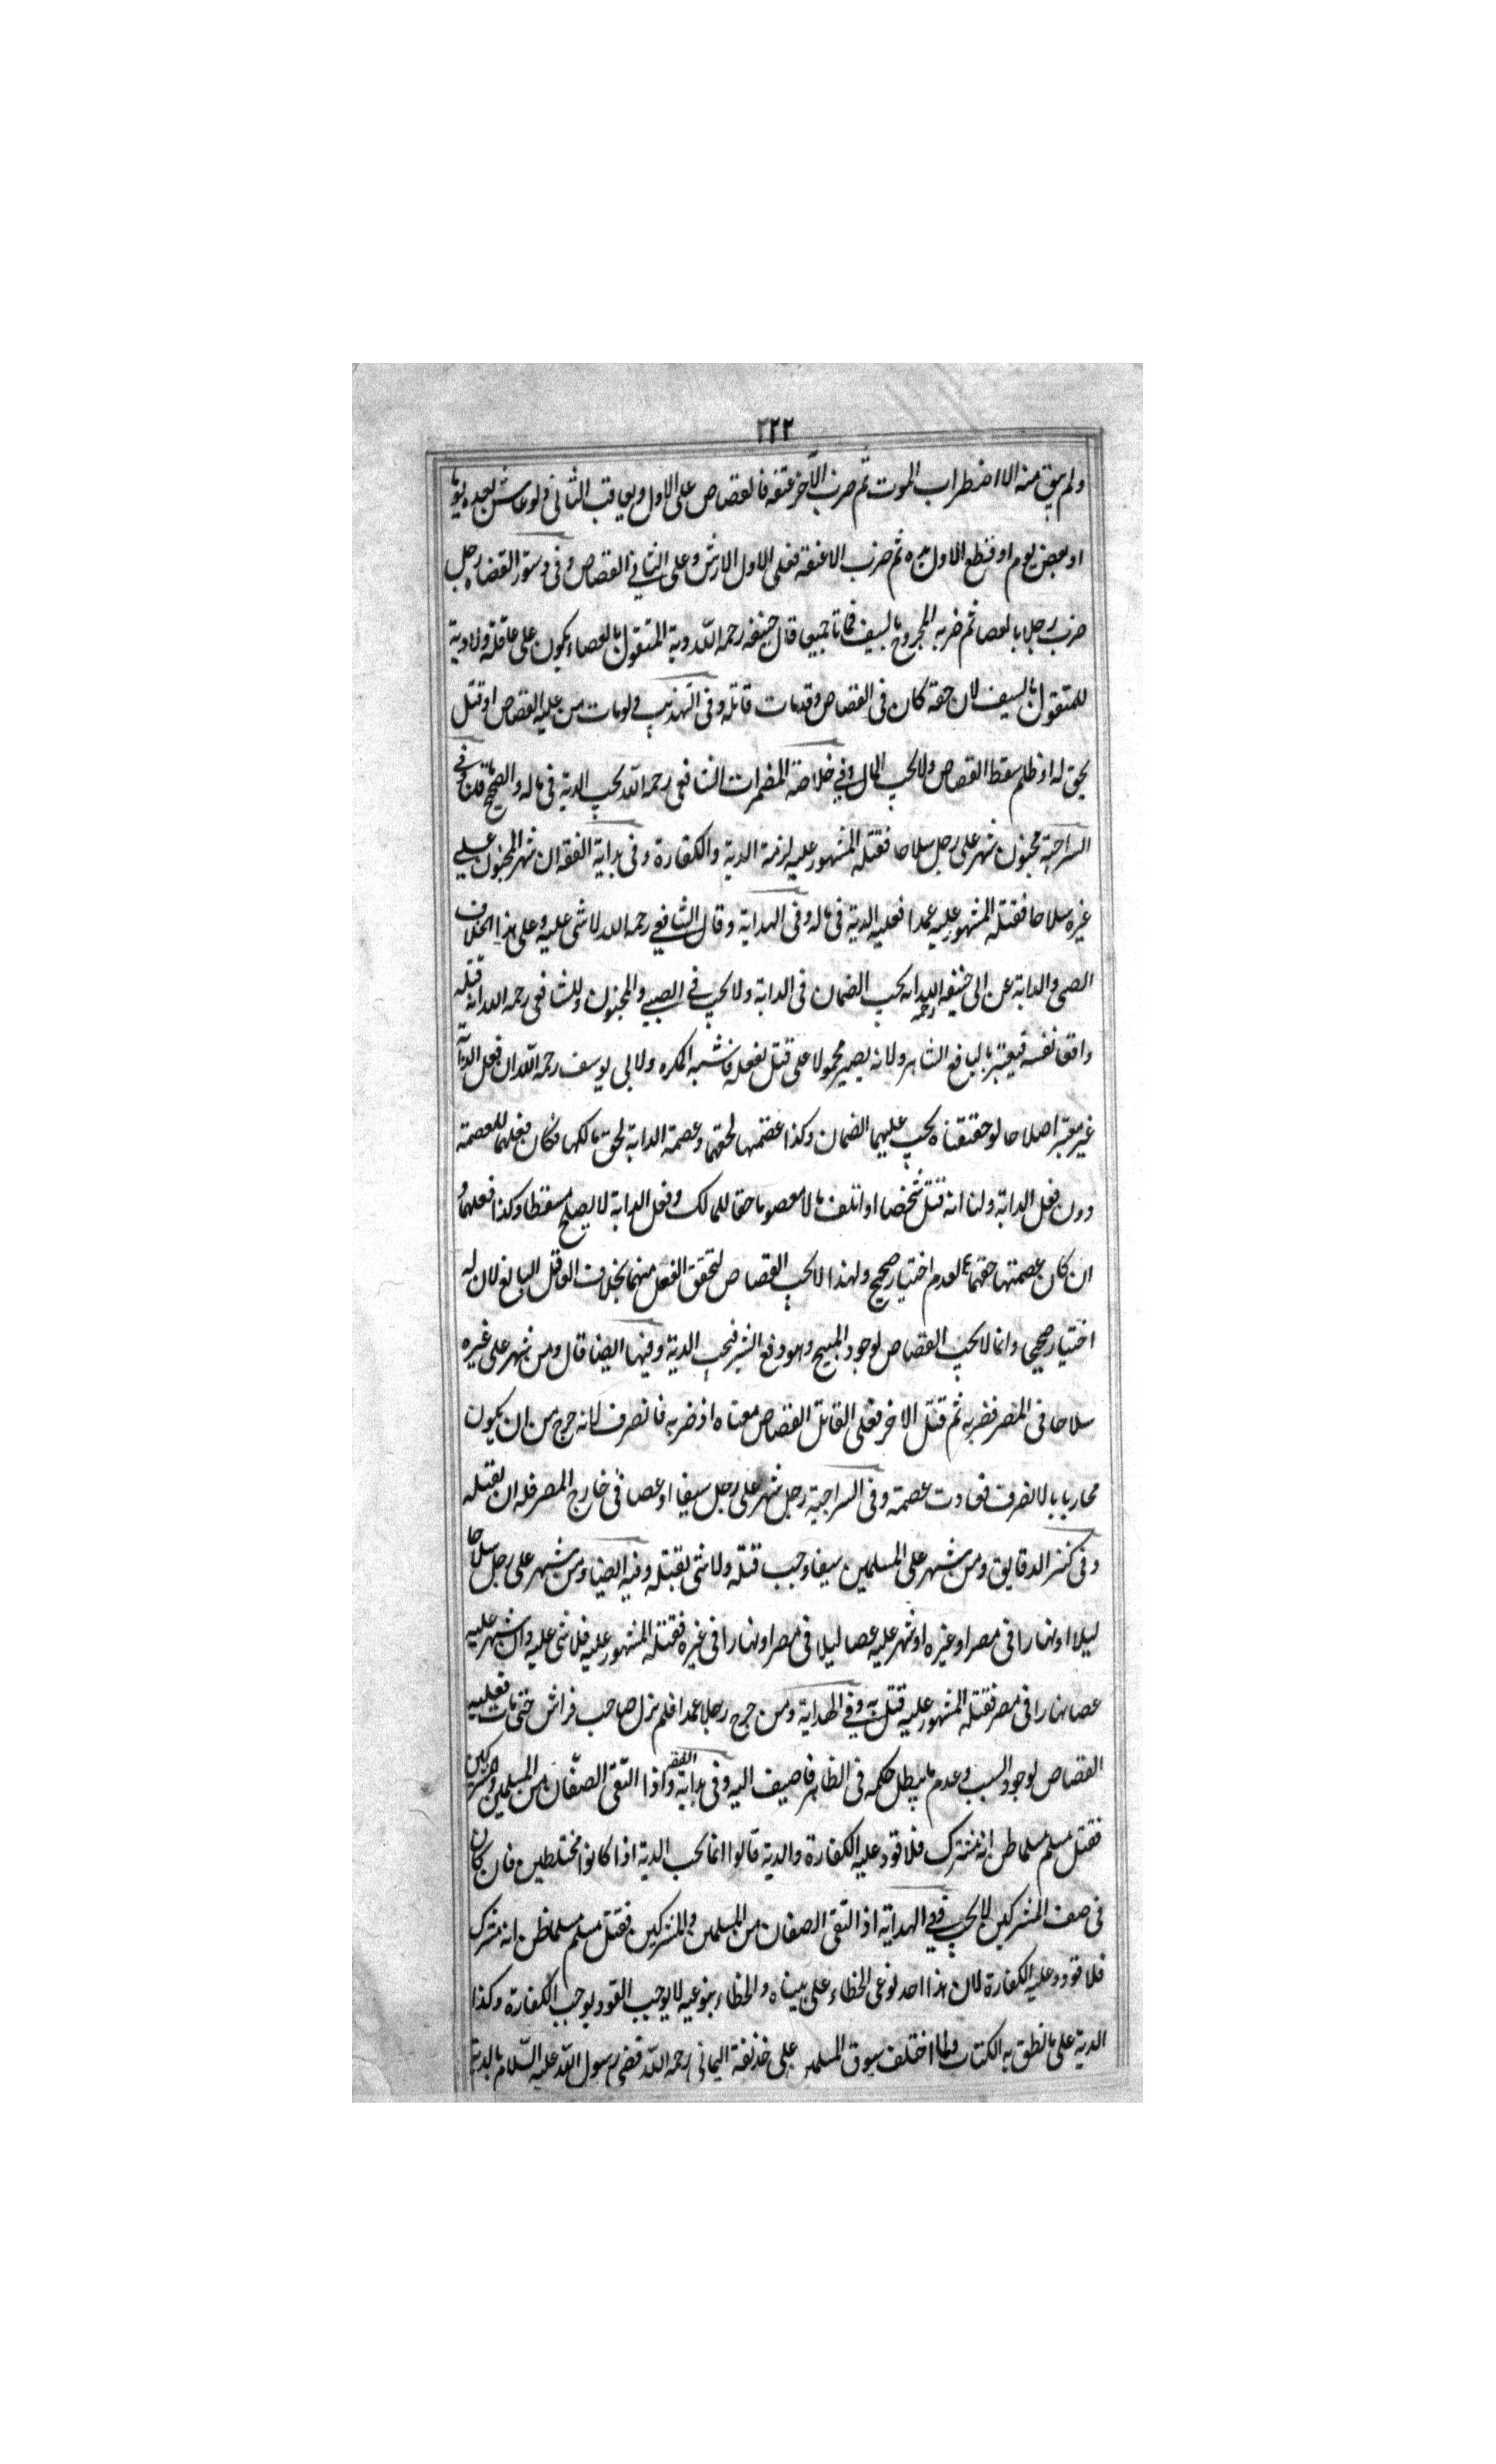 ٣٢٢
ولم يبق منه الا اضطراب الموت ثم ضرب الآخر عنقه فالقصاص على الاول ويعاقب الثانى ولو عاش بعده يوما
او بعض يوم او قطع الاول يده ثم ضرب الاخر عنقه فعلى الاول الارش وعلى الثانى القصاص وفى دستور القضاه رجل
ضرب رجلا بالعصا ثم ضربه المجروح بالسيف فماتا جميعا قال حنيفه رحمه الله دية المقتول بالعصاء يكون على عاقلة ولا دية
للمقتول بالسيف لان حقه كان فى القصاص وقد مات قاتله وفى التهذيب ولو مات من عليه القصاص او قتل
بحق له او ظلم سقط القصاص ولا يجب المال وفى خلاصة المضمرات الشافعى رحمه الله يجب الدية فى ماله والصحيح ما قلنا وفى
السراجية مجنون شهر على رجل سلاحا فقتله المشهور عليه لزمة الدية والكفارة وفى بداية الفقه ان شهر المجنون على
غيره سلاحا فقتله المشهور عليه عمدا فعليه الدية فى ماله وفى الهداية وقال الشافعى رحمه الله لا شى عليه وعلى هذا الخلاف
الصبى والدابة عن ابى حنيفه رحمه الله انه يجب الضمان فى الدابة ولا يجب فى الصبى والمجنون وللشافعى رحمه الله انه قتله
دافعا نفسه فيعتبر بالبالغ الشاهر ولانه يصير محمولا على قتل بفعله فاشبه المكره ولابى يوسف رحمه الله ان فعل الدابة
غير معتبر اصلا حتى لو حققناه يجب عليهما الضمان وكذا عصمتها لحقهما وعصمة الدابة لحق مالكها فكان فعلهما للعصمة
دون فعل الدابة ولنا انه قتل شخصا او اتلف مالا معصوما حقا للمالك وفعل الدابة لا يصلح مسقطا وكذا فعلهما و
ان كان عصمتها حقهما لعدم اختيار صحيح ولهذا لا يجب القصاص لتحقق الفعل منهما بخلاف العاقل البالغ لان له
اختيار صحيحى وانما لا يجب القصاص لوجود المبيح وهو دفع الشر فيجب الدية وفيها ايضا قال ومن شهر على غيره
سلاحا فى المصر فضربه ثم قتل الاخر فعلى القاتل القصاص معناه اذ ضربه فانصرف لانه خرج من ان يكون
محاربا بالانصرف فعادت عصمة وفى السراجية رجل شهر على رجل سيفا او عصا فى خارج المصر فله ان يقتله
وفى كنز الدقايق ومن شهر على المسلمين سيفا وجب قتله ولا شى بقتله وفيه ايضا ومن شهر على رجل سلاحا
ليلا او نهارا فى مصر او غيره او شهر عليه عصا ليلا فى مصر او نهارا فى غيره فقتله المشهور عليه فلا شى عليه وان شهر عليه
عصا نهارا فى مصر فقتله المشهور عليه قتل به وفى الهداية ومن جرح رجلا عمدا فلم يزل صاحب فراش حتى مات فعليه
القصاص لوجود السبب وعدم ما يبطل حكمه فى الظاهر فاضيف اليه وفى بداية الفقه واذا التقى الصفان من المسلمين والمشركين
فقتل مسلم مسلما ظن انه مشرك فلا قود عليه الكفارة والدية قالوا انما يجب الدية اذا كانوا مختلطين فان كان
فى صف المشركين لا يجب وفى الهداية اذا التقى الصفان من المسلمين والمشركين فقتل مسلم مسلما ظن انه مشرك
فلا قود وعليه الكفارة لان هذا احد نوعى الخطاء على بيناه والخطاء بنوعيه لا يوجب القود يوجب الكفارة وكذا
الدية على ما نطق به الكتاب ولما اختلف سيوف المسلمين على خذيفة اليمانى رحمه الله قضى رسول الله عليه السلام بالدية